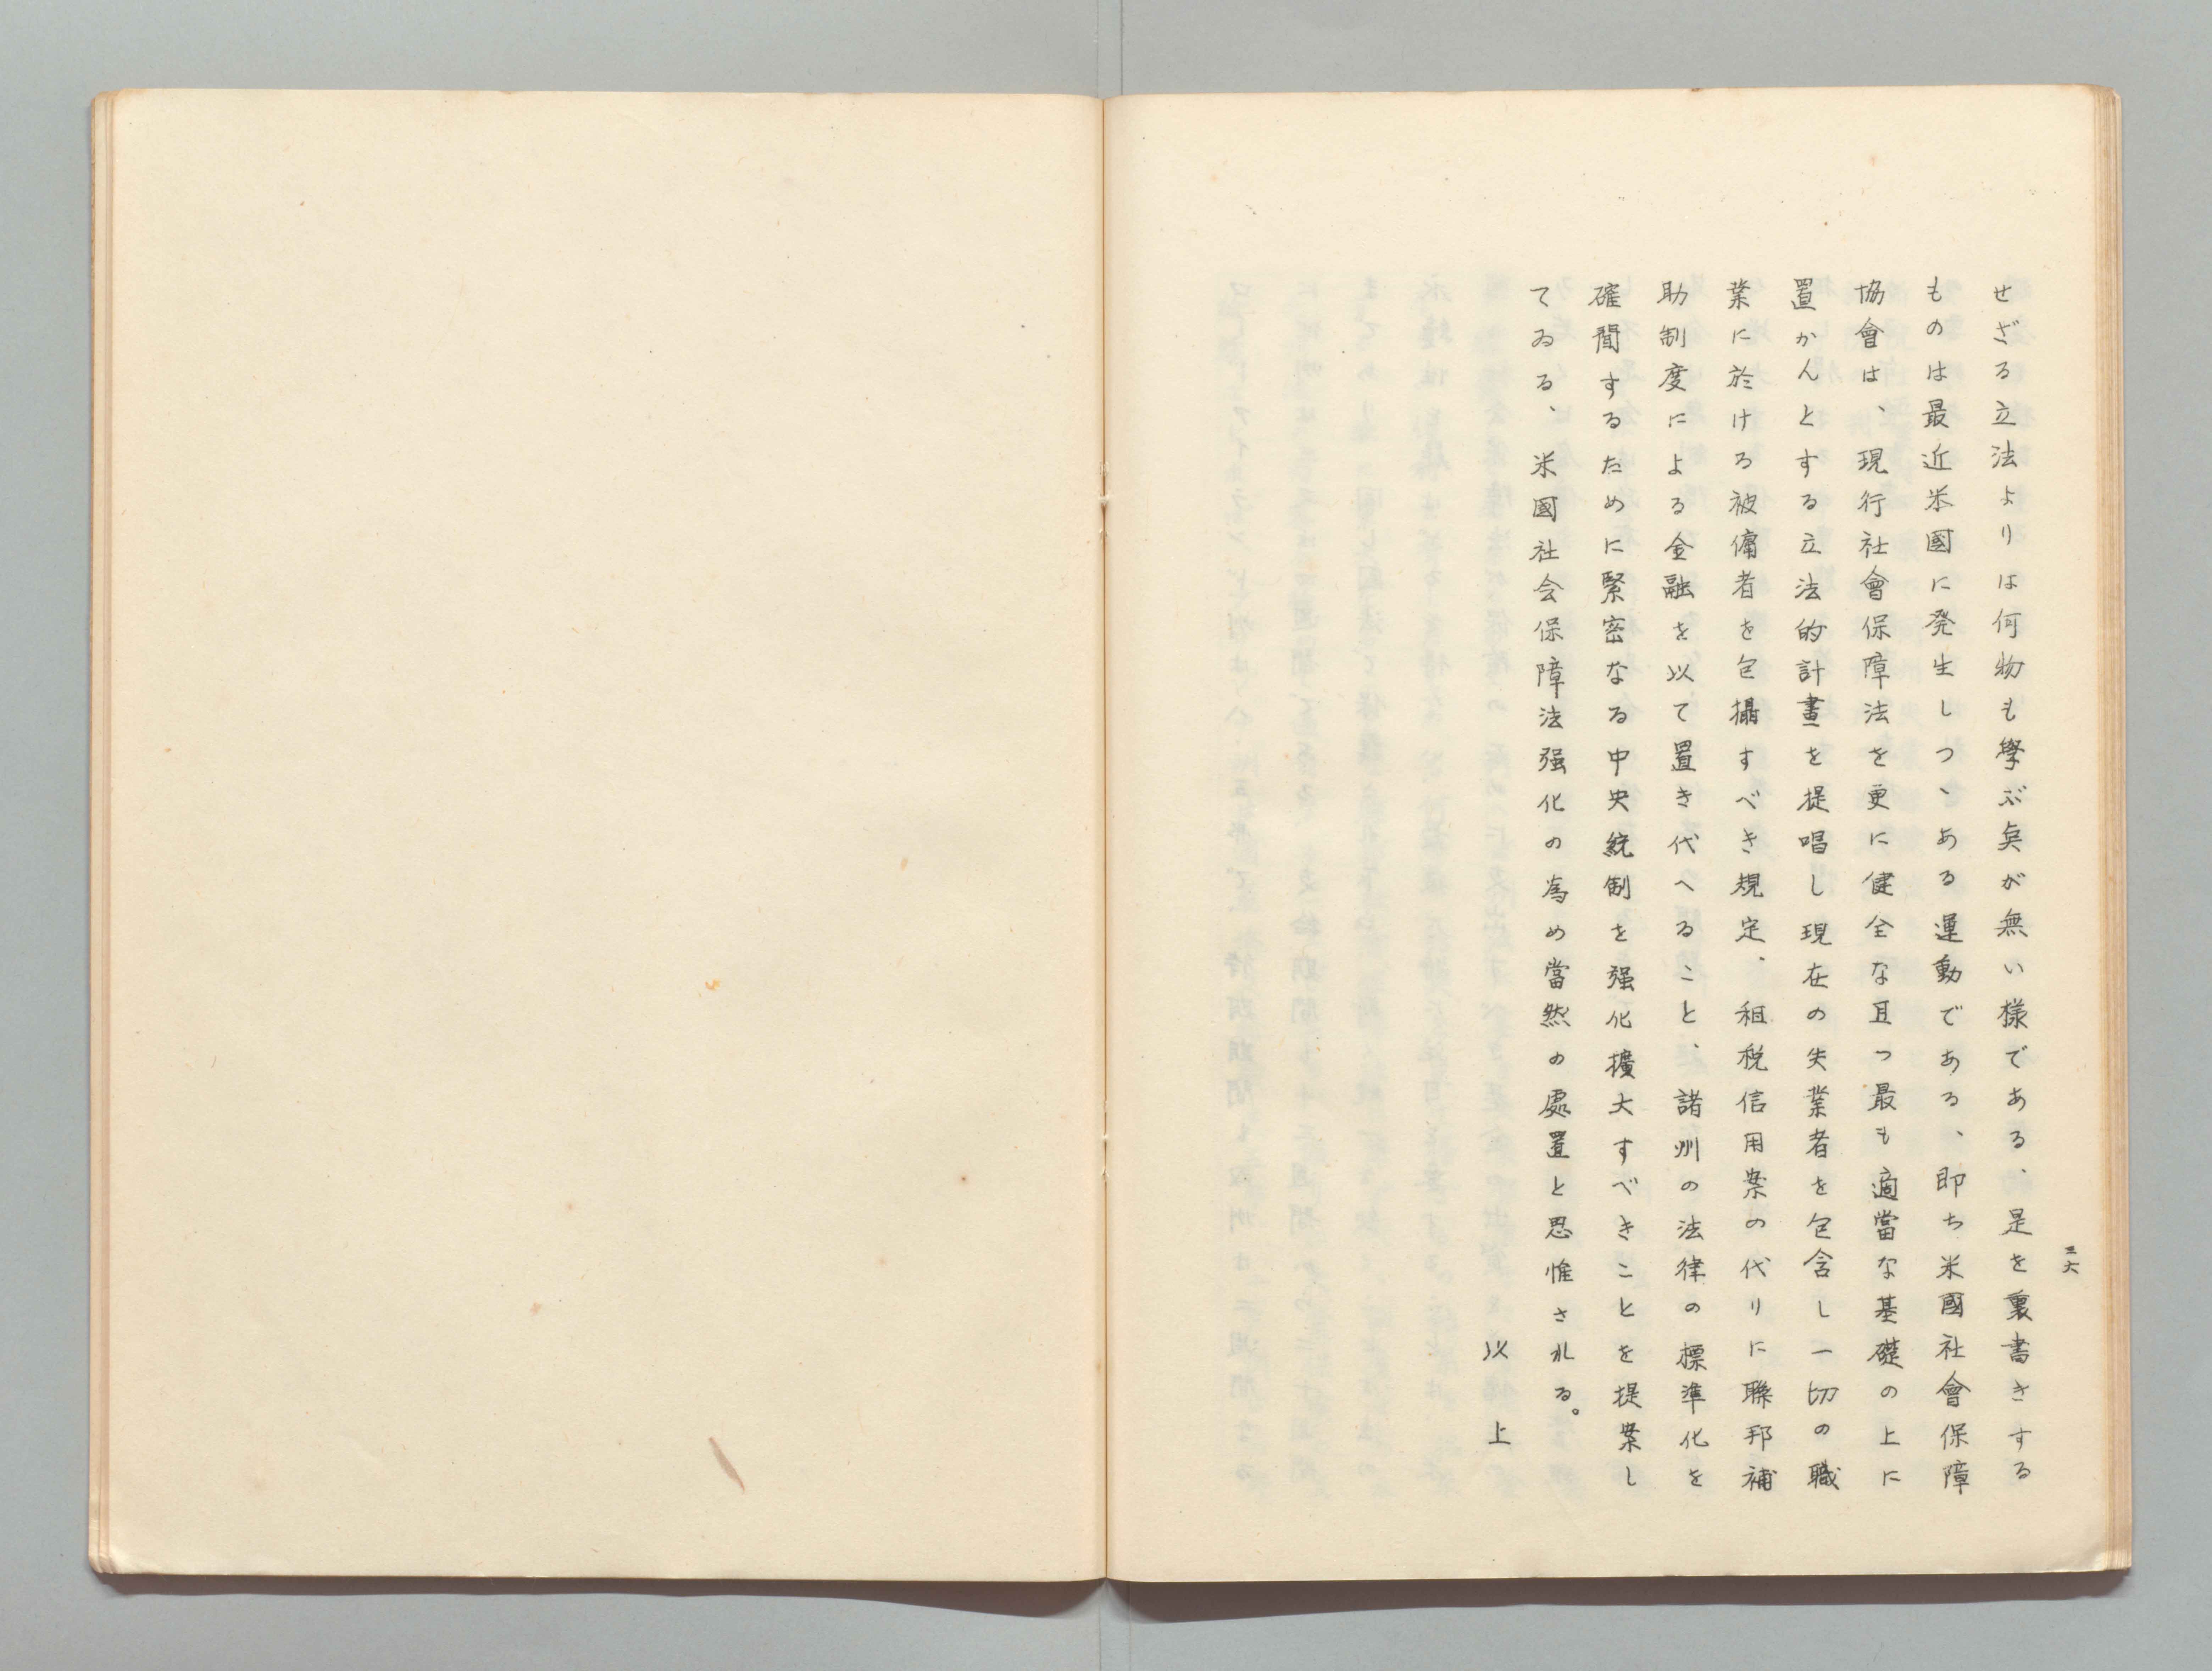 三六
せざる立法よりは何物も學ぶ矣が無い様である、是を裏書きする
ものは最近米國に発生しつゝある運動である、即ち米國社會保障
協會は、現行社會保障法を更に健全な且つ最も適當な基礎の上に
置かんとする立法的計畫を提唱し現在の失業者を包含し一切の職
業に於ける被傭者を包攝すべき規定、租税信用案の代りに聯邦補
助制度による金融を以て置き代へること、諸州の法律の標準化を
確聞するために緊密なる中央統制を强化擴大すべきことを提案し
てゐる、米國社会保障法强化の為め當然の處置と思惟される。
以上